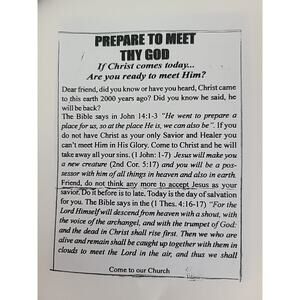 PREPARE TO MEET
THY GOD
If Christ comes today...
Are you ready to meet Him?
Dear friend, did you know or have you heard, Christ came
to this earth 2000 years ago? Did you know he said, he
will be back?
The Bible says in John 14:1-3 "He went to prepare a
place for us, so at the place He is, we can also be". If you
do not have Christ as your only Savior and Healer you
can't meet Him in His Glory. Come to Christ and he will
take away all your sins. (1 John: 1-7) Jesus will make you
a new creature (2nd Cor. 5:17) and you will be a pos-
sessor with him of all things in heaven and also in earth.
Friend, do not think any more to accept Jesus as your
savior. Do it before is to late. Today is the day of salvation
for you. The Bible says in the (1 Thes. 4:16-17) "For the
Lord Himself will descend from heaven with a shout, with
the voice of the archangel, and with the trumpet of God:
and the dead in Christ shall rise first. Then we who are
alive and remain shall be caught up together with them in
clouds to meet the Lord in the air, and thus we shall
Come to our Church